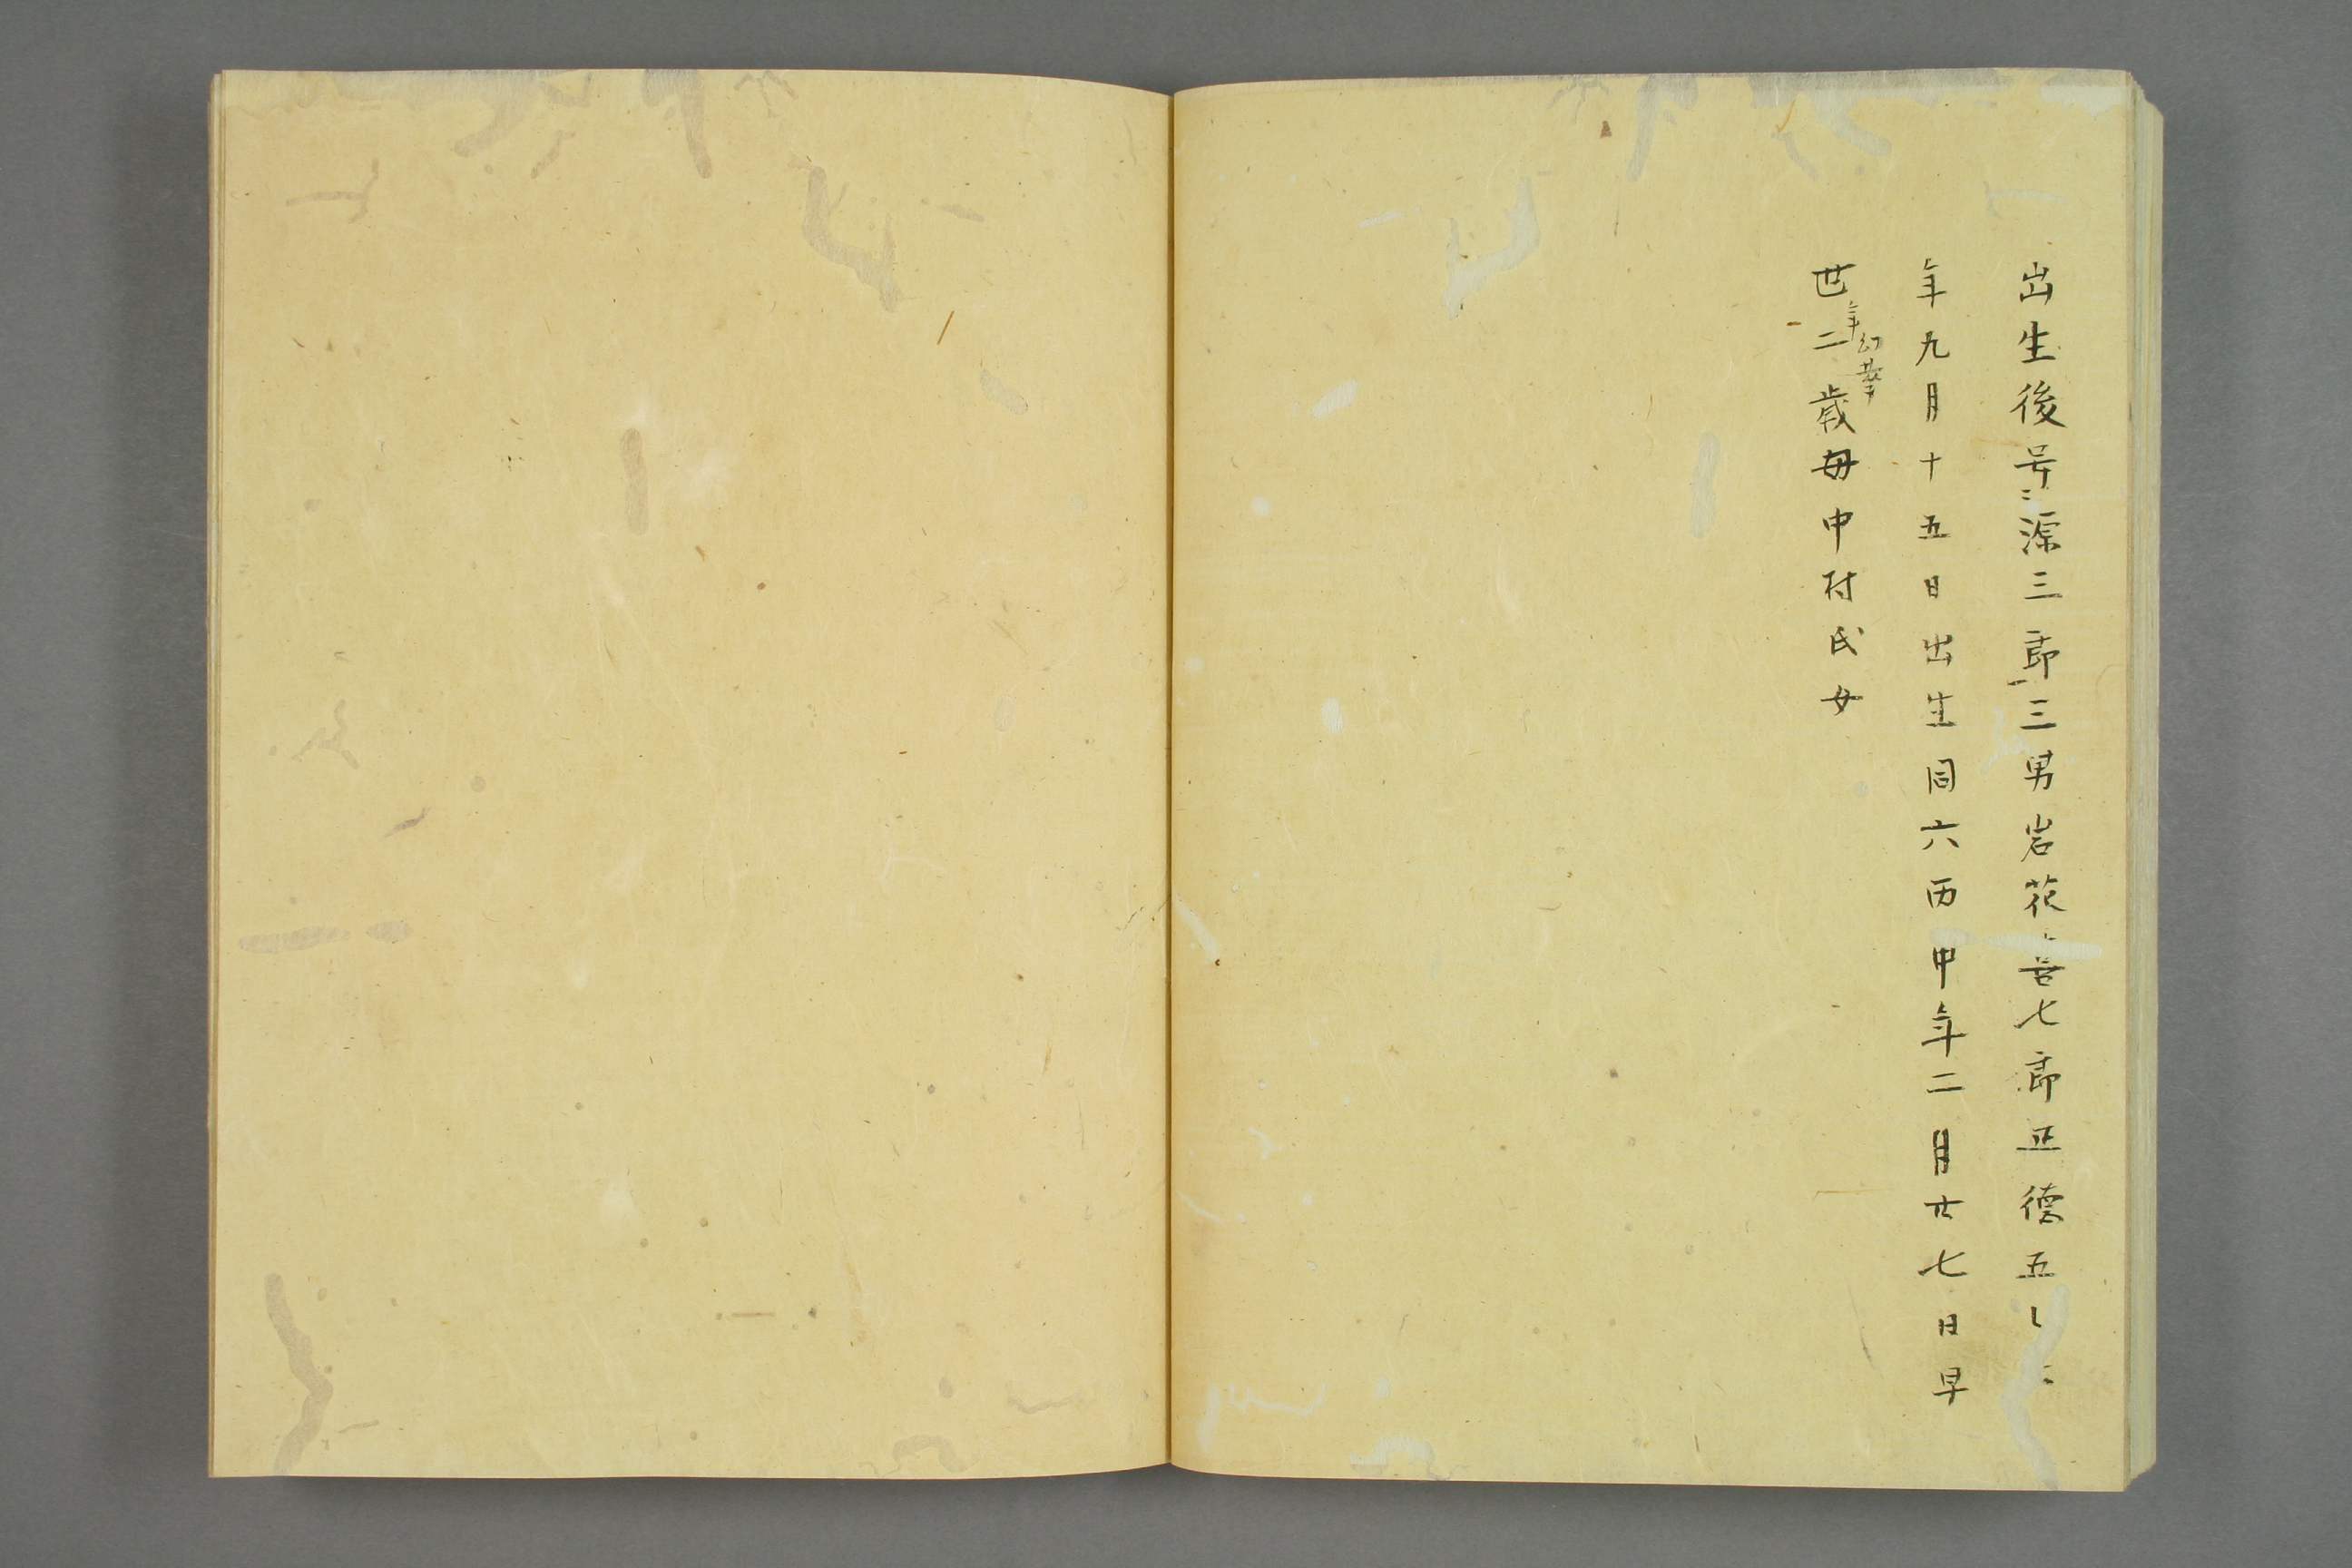 出生後号源三郎三男岩花喜七郎正徳五乙
年九月十五日出生同六丙申年二月廿七日早
世二歳母中村氏女
年幻